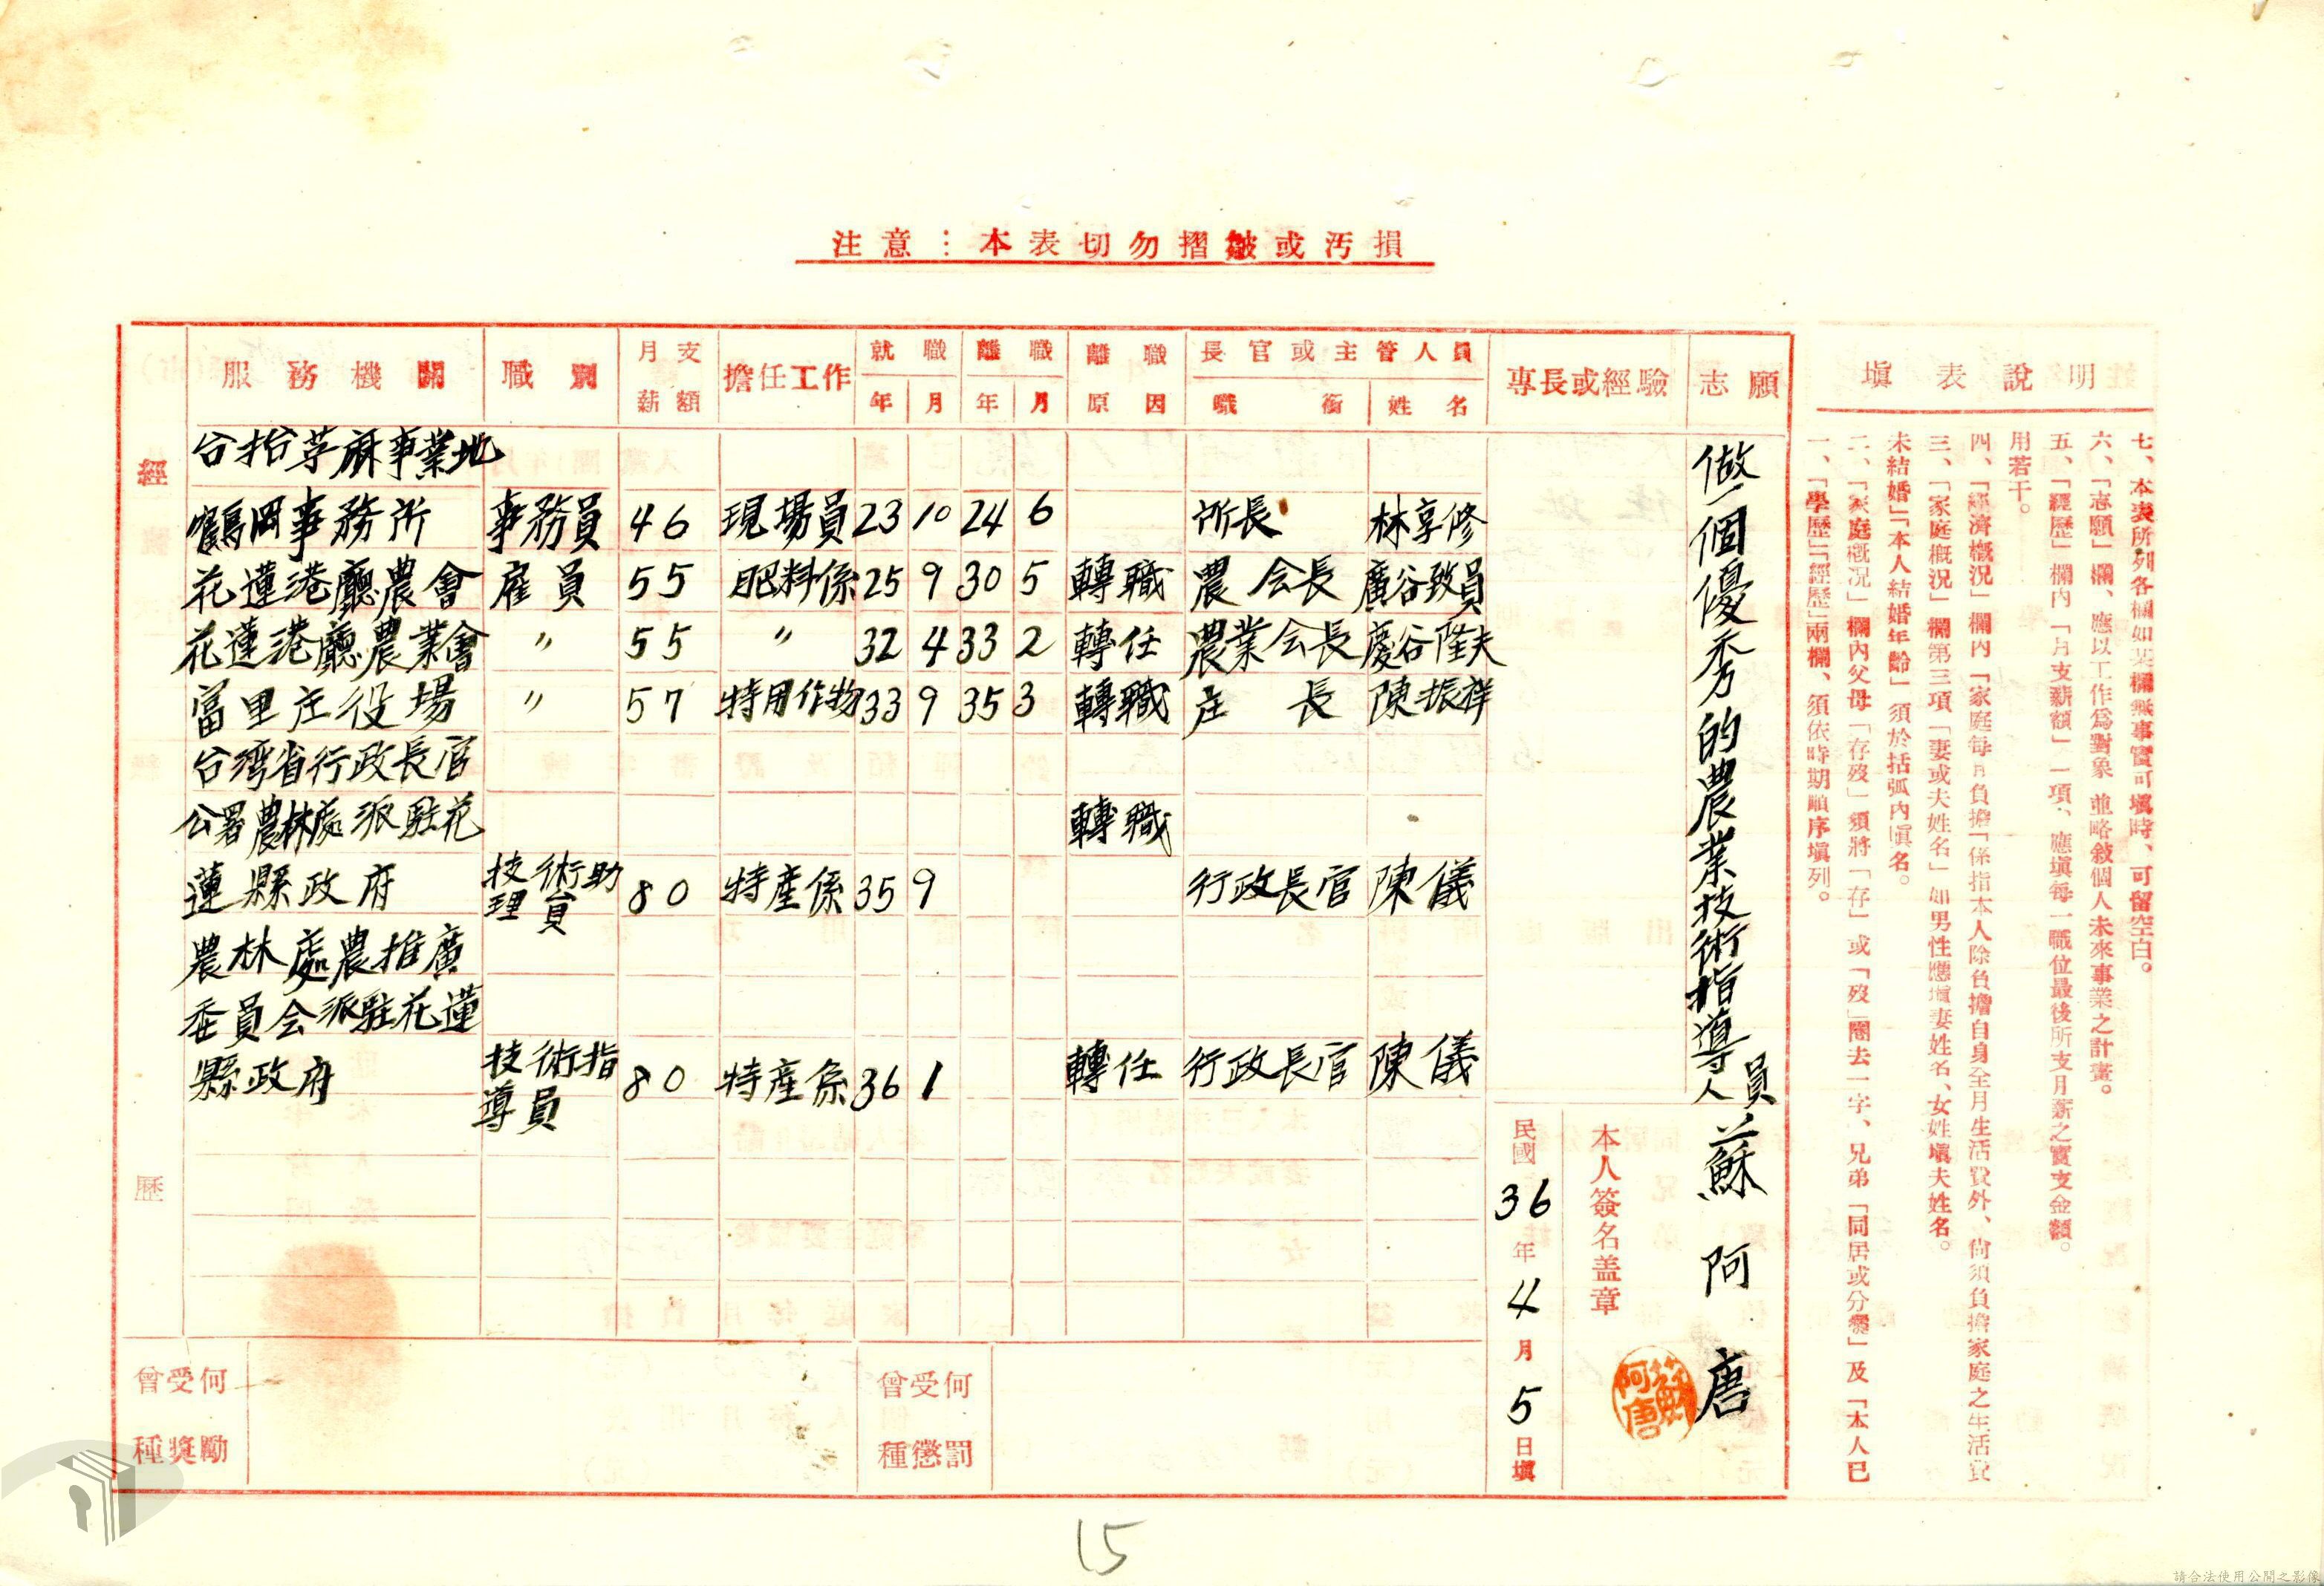 注意：本表切勿摺皺或汚損
服務機關 職別 月支薪額 擔任工作 就職 年 月 離職 年 月 離職原因 長官或主管人員 職銜 姓名 專長或經驗 志願 填表說明
經歷
台拓苧麻事業地
鶴岡事務所 事務員 46 現場員 23 10 24 6 所長 林享修
花蓮港廳農會 雇員 55 肥料係 25 9 30 5 轉職 農会長 廣谷致員
花蓮港廳農業會 〃 55 〃 32 4 33 2 轉任 農業会長 慶谷隆夫
富里庄役場 〃 57 特用作物 33 9 35 3 轉職 庄長 陳振祥
台湾省行政長官
公署農林處派駐花 轉職
蓮縣政府 技術助理員 80 特產係 35 9 行政長官 陳儀
農林處農推廣
委員会派駐花蓮
縣政府 技術指導員 80 特產係 36 1 轉任 行政長官 陳儀
做一個優秀的農業技術指導人員
蘇阿唐
蘇阿唐
本人簽名盖章
民國36年4月5日填
曾受何種獎勵
曾受何種懲罰
一、「學歷」「經歷」兩欄、須依時期順序填列。
二、「家庭概况」欄內父母「存歿」須將「存」或「歿」圈去一字、兄弟「同居或分爨」及「本人已
未結婚」「本人結婚年齡」須於括弧內填名。
三、「家庭概況」欄第三項「妻或夫姓名」如男性應填妻姓名、女姓填夫姓名。
四、「經濟概況」欄內「家庭每月負擔」係指本人除負擔自身全月生活費外、尙須負擔家庭之生活費
用若干。
五、「經歷」欄內「月支薪額」一項、應填每一職位最後所支月薪之實支金額。
六、「志願」欄、應以工作爲對象 並略敘個人未來事業之計畫。
七、本表所列各欄如某欄無事實可填時、可留空白。
15
請合法使用公開之影像